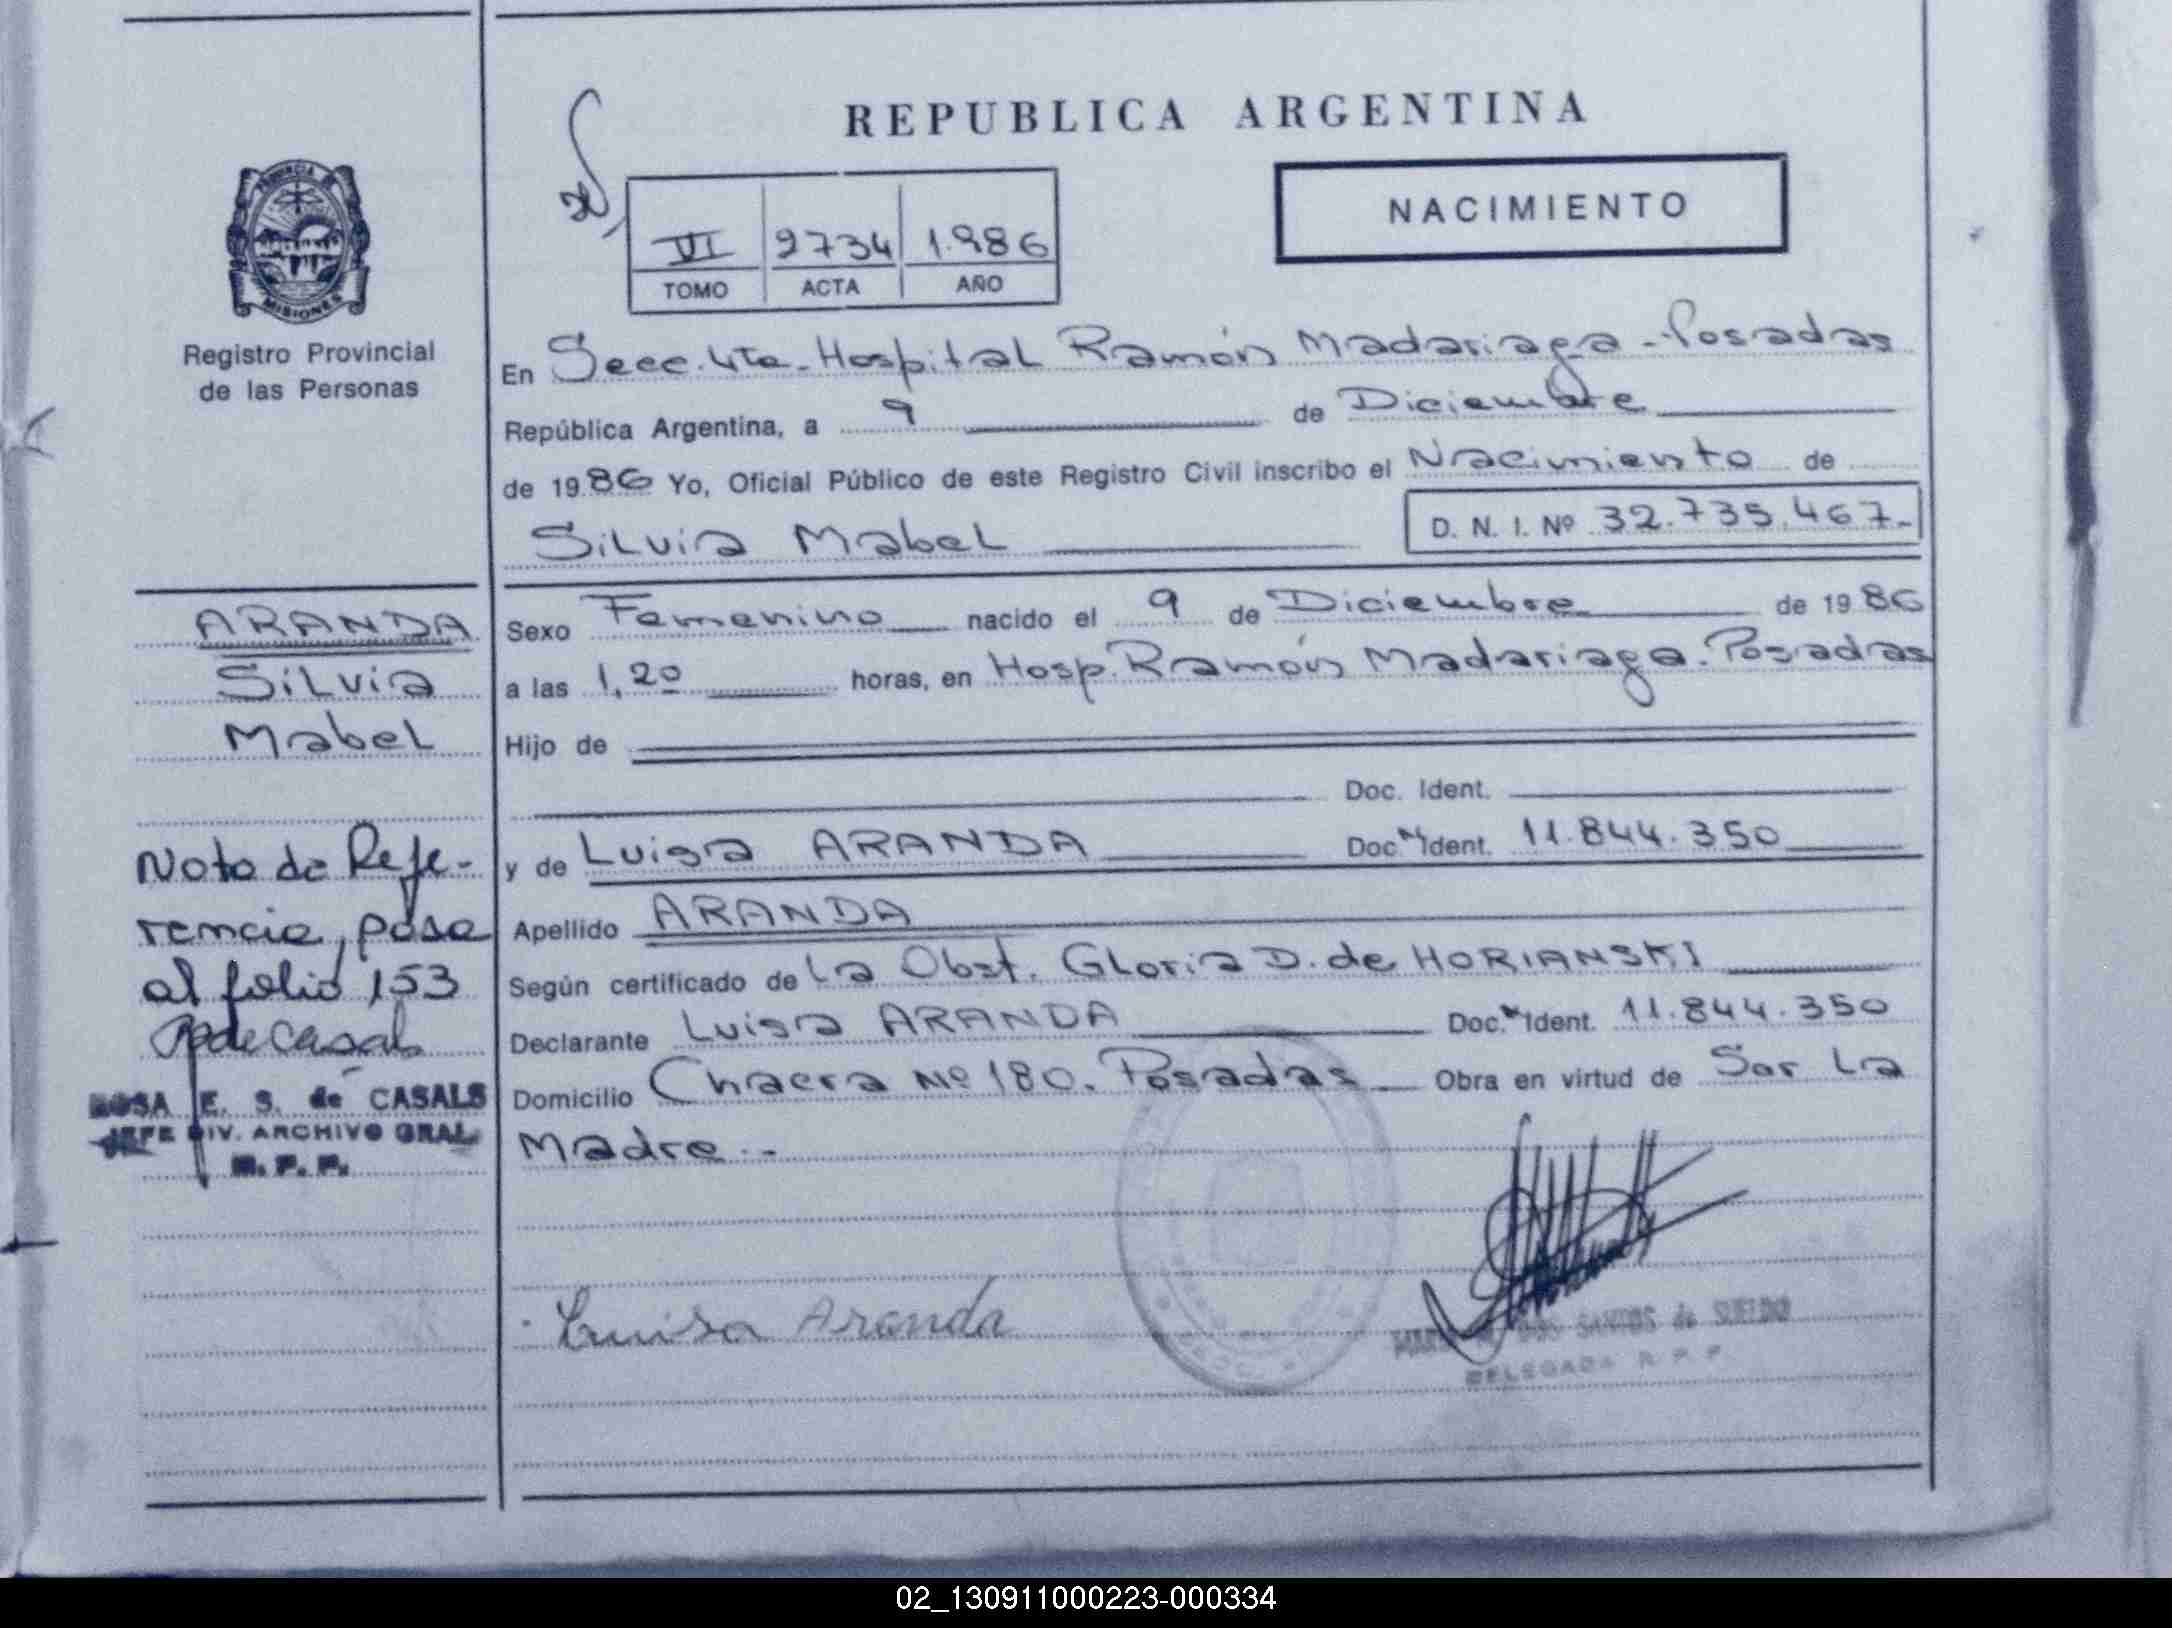 REPUBLICA ARGENTINA
NACIMIENTO
VI 2734 1.986
TOMO ACTA AÑO
PROVINCIA DE
MISIONES
Registro Provincial
de las Personas
En Secc. 4ta. Hospital Ramón Madariaga - Posadas
República Argentina, a 9 de Diciembre
de 1986 Yo, Oficial Público de este Registro Civil inscribo el Nacimiento de
Silvia Mabel D. N. I. Nº 32.735.467.-
ARANDA
Silvia
Mabel
Sexo Femenino nacido el 9 de Diciembre de 1986
a las 1,20 horas, en Hosp. Ramón Madariaga. Posadas
Hijo de
Doc. Ident.
y de Luisa ARANDA Doc. Ident. 11.844.350
Apellido ARANDA
Según certificado de La Obst. Gloria D. de HORIANSKI
Declarante Luisa ARANDA Doc. Ident. 11.844.350
Domicilio Chacra Nº 180. Posadas Obra en virtud de Ser La
Madre.-
Nota de Refe-
rencia, pasa
al folio 153
ROSA E. S. de CASALS
JEFE DIV. ARCHIVO GRAL.
R. P. P.
Luisa Aranda
DOS SANTOS de SUELDO
DELEGADA R. P. P.
02_130911000223-000334